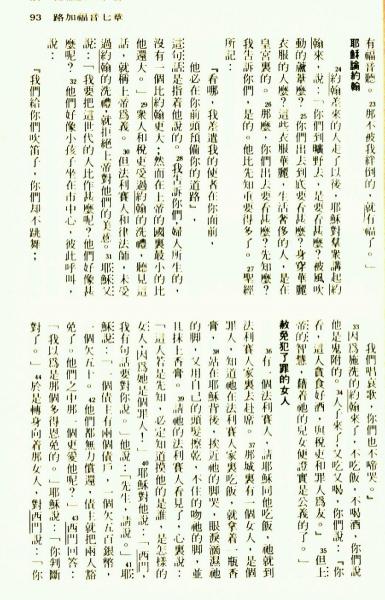 93 路加福音七章
有福音聽。23那不被我絆倒的，就有福了。」
耶穌論約翰
24約翰差來的人走了以後，耶穌對羣衆講起約
翰來，說：「你們到曠野去，是要看甚麼？被風吹
動的蘆葦麼？25你們出去到底要看甚麼？身穿華麗
衣服的人麼？這些衣服華麗，生活奢侈的人，是在
皇宮裏的。26那麼，你們出去要看甚麼？先知麼？
我告訴你們，是的。他比先知重要得多了。27聖經
所記：
『看哪，我差遣我的使者在你前面，
他必在你前頭預備你的道路』，
這句話是指着他說的。28我告訴你們，婦人所生的，
沒有一個比約翰更大；然而在上帝的國裏最小的比
他還大。」29衆人和稅吏受過約翰的洗禮，聽見這
話，就稱上帝爲義。30但法利賽人和律法師，未受
過約翰的洗禮，就拒絕上帝對他們的美意。31耶穌又
說：「我要把這世代的人比作甚麼呢？他們好像甚
麼呢？32他們好像小孩子坐在市中心，彼此呼叫，
說：
『我們給你們吹笛子，你們却不跳舞；
我們唱哀歌，你們也不啼哭。』
33因爲施洗的約翰來了，不吃飯，不喝酒，你們說
他是鬼附的。34人子來了，又吃又喝，你們說：『你
看，這人貪食好酒，與稅吏和罪人爲友。』35但上
帝的智慧，藉着祂的兒女便證實是公義的了。」
赦免犯了罪的女人
36有一個法利賽人，請耶穌同他吃飯，祂就到
法利賽人家裏去赴席。37那城裏有一個女人，是個
罪人，知道祂在法利賽人家裏吃飯，就拿着一瓶香
膏，38站在耶穌背後，挨近祂的脚哭，眼淚滴濕祂
的脚，又用自己的頭髮擦乾，不住的吻祂的脚，並
且抹上香膏。39請祂的法利賽人看見了，心裏說：
「這人若是先知，必定知道摸他的是誰，是怎樣的
女人，因爲她是個罪人！」40耶穌對他說：「西門，
我有句話要對你說。」他說：「先生，請說。」41耶
穌說：「一個債主有兩個債戶，一個欠五百銀幣，
一個欠五十。42他們都無力償還，債主就把兩人豁
免了。他們之中那一個更愛他呢？」43西門回答：
「我以爲是那個多得恩免的。」耶穌說：「你判斷
對了。」44於是轉身向着那女人，對西門說：「你